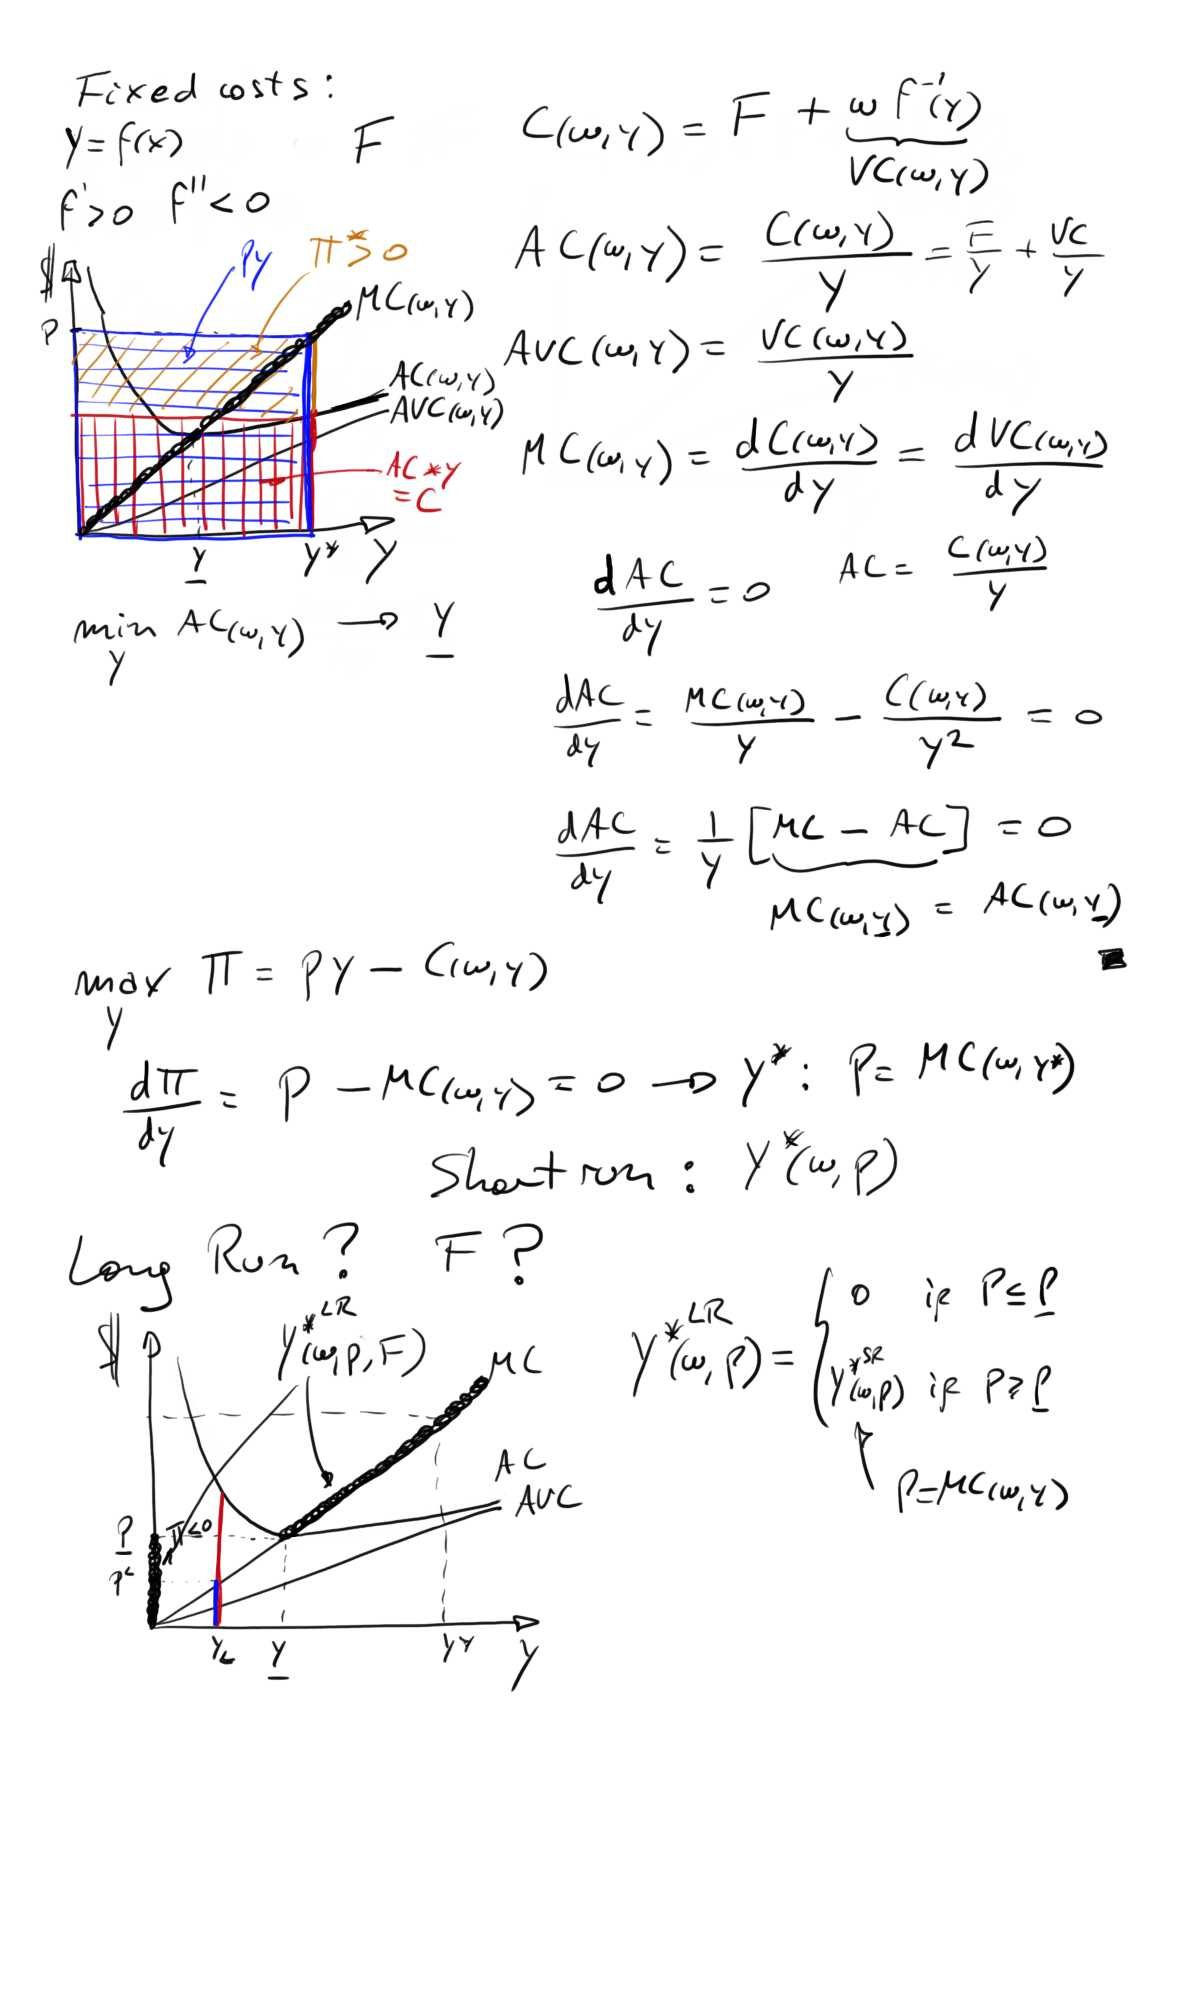 Fixed costs:
y = f(x) F
f' > 0 f'' < 0
C(w,y) = F + w f⁻¹(y)
VC(w,y)
AC(w,y) = C(w,y)/y = F/y + VC/y
AVC(w,y) = VC(w,y)/y
MC(w,y) = dC(w,y)/dy = dVC(w,y)/dy
$
P
Py
π* > 0
MC(w,y)
AC(w,y)
AVC(w,y)
AC * y
= C
y̲ y* y
min AC(w,y) → y̲
y
dAC/dy = 0 AC = C(w,y)/y
dAC/dy = MC(w,y)/y − C(w,y)/y² = 0
dAC/dy = 1/y [MC − AC] = 0
MC(w,y̲) = AC(w,y̲)
max π = Py − C(w,y)
y
dπ/dy = P − MC(w,y) = 0 → y*: P = MC(w,y*)
Short run: y*(w,p)
Long Run? F?
$
y*ᴸᴿ(w,p,F)
MC
AC
AVC
P̲
π<0
Pᴸ
y_L y̲ y* y
y*ᴸᴿ(w,p) = { 0 if P ≤ P̲
y*ˢᴿ(w,p) if P ≥ P̲
P = MC(w,y)